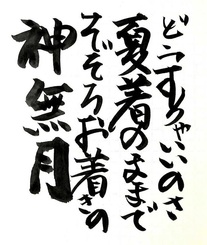 どうすりゃいのさ
夏着のままで
そぞろお着きの
神無月